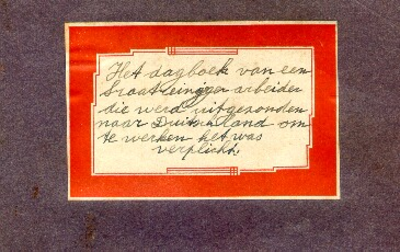 Het dagboek van een
arbeider
die werd uitgezonden
naar Duitschland om
te werken het was
verplicht.